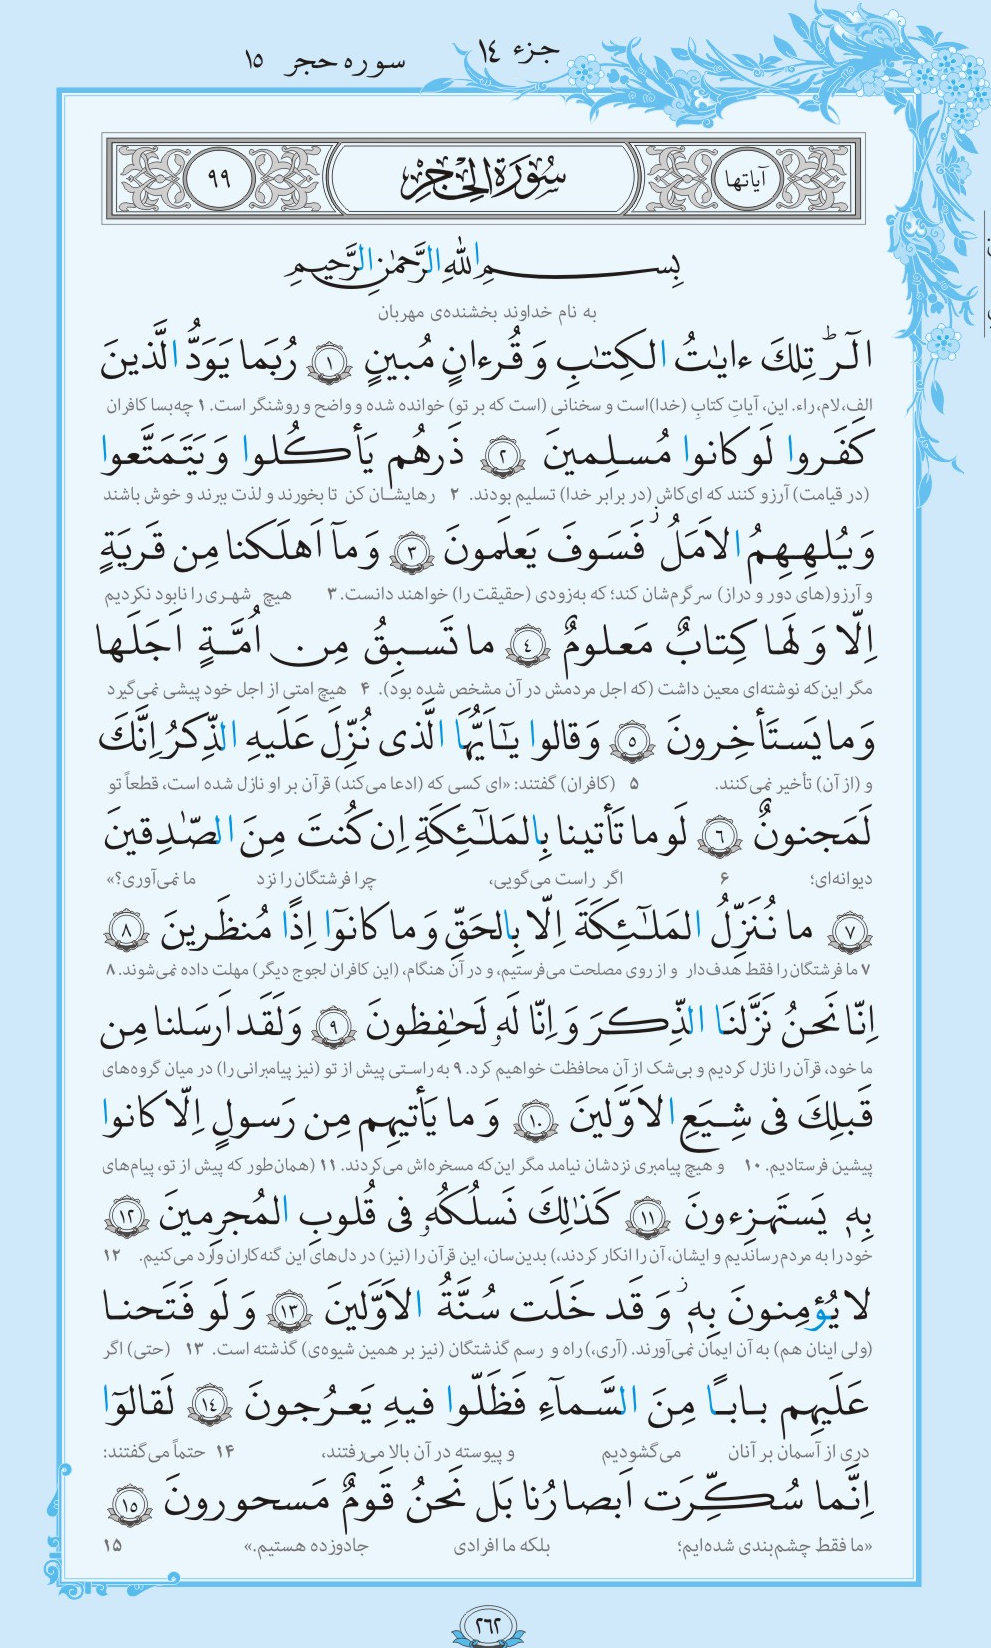 جزء ١٤
سوره حجر ١٥
آیاتها
سُورَةُ الحِجْر
٩٩
بِسمِ اللهِ الرَّحمٰنِ الرَّحیمِ
به نام خداوند بخشنده‌ی مهربان
الٓرٰ ۚ تِلكَ ءایٰتُ الكِتٰبِ وَ قُرءانٍ مُبینٍ ١ رُبَما یَوَدُّ الَّذینَ
الف، لام، راء. این، آیاتِ کتابِ (خدا)است و سخنانی (است که بر تو) خوانده شده و واضح و روشنگر است. ۱ چه‌بسا کافران
كَفَروا لَو كانوا مُسلِمینَ ٢ ذَرهُم یَأكُلوا وَ یَتَمَتَّعوا
(در قیامت) آرزو کنند که ای‌کاش (در برابر خدا) تسلیم بودند. ۲ رهایشان کن تا بخورند و لذت ببرند و خوش باشند
وَ یُلهِهِمُ الاَمَلُ ۖ فَسَوفَ یَعلَمونَ ٣ وَ مآ اَهلَكنا مِن قَریَةٍ
و آرزو(های دور و دراز) سرگرم‌شان کند؛ که به‌زودی (حقیقت را) خواهند دانست. ۳ هیچ شهری را نابود نکردیم
اِلّا وَ لَها كِتابٌ مَعلومٌ ٤ ما تَسبِقُ مِن اُمَّةٍ اَجَلَها
مگر این‌که نوشته‌ای معین داشت (که اجل مردمش در آن مشخص شده بود). ۴ هیچ امتی از اجل خود پیشی نمی‌گیرد
وَ ما یَستَأخِرونَ ٥ وَ قالوا یٰٓاَیُّهَا الَّذی نُزِّلَ عَلَیهِ الذِّكرُ اِنَّكَ
و (از آن) تأخیر نمی‌کنند. ۵ (کافران) گفتند: «ای کسی که (ادعا می‌کند) قرآن بر او نازل شده است، قطعاً تو
لَمَجنونٌ ٦ لَو ما تَأتینا بِالمَلٰٓئِكَةِ اِن كُنتَ مِنَ الصّٰدِقینَ
دیوانه‌ای؛ ۶ اگر راست می‌گویی، چرا فرشتگان را نزد ما نمی‌آوری؟»
٧ ما نُنَزِّلُ المَلٰٓئِكَةَ اِلّا بِالحَقِّ وَ ما كانوٓا اِذًا مُنظَرینَ ٨
۷ ما فرشتگان را فقط هدف‌دار و از روی مصلحت می‌فرستیم، و در آن هنگام، (این کافران لجوج دیگر) مهلت داده نمی‌شوند. ۸
اِنّا نَحنُ نَزَّلنَا الذِّكرَ وَ اِنّا لَهُۥ لَحٰفِظونَ ٩ وَ لَقَد اَرسَلنا مِن
ما خود، قرآن را نازل کردیم و بی‌شک از آن محافظت خواهیم کرد. ۹ به راستی پیش از تو (نیز پیامبرانی را) در میان گروه‌های
قَبلِكَ فی شِیَعِ الاَوَّلینَ ١٠ وَ ما یَأتیهِم مِن رَسولٍ اِلّا كانوا
پیشین فرستادیم. ۱۰ و هیچ پیامبری نزدشان نیامد مگر این‌که مسخره‌اش می‌کردند. ۱۱ (همان‌طور که پیش از تو، پیام‌های
بِهٖ یَستَهزِءونَ ١١ كَذٰلِكَ نَسلُكُهُۥ فی قُلوبِ المُجرِمینَ ١٢
خود را به مردم رساندیم و ایشان، آن را انکار کردند،) بدین‌سان، این قرآن را (نیز) در دل‌های این گنه‌کاران وارد می‌کنیم. ۱۲
لا یُؤمِنونَ بِهٖ ۖ وَ قَد خَلَت سُنَّةُ الاَوَّلینَ ١٣ وَ لَو فَتَحنا
(ولی اینان هم) به آن ایمان نمی‌آورند. (آری،) راه و رسم گذشتگان (نیز بر همین شیوه‌ی) گذشته است. ۱۳ (حتی) اگر
عَلَیهِم بابًا مِنَ السَّمآءِ فَظَلّوا فیهِ یَعرُجونَ ١٤ لَقالوٓا
دری از آسمان بر آنان می‌گشودیم و پیوسته در آن بالا می‌رفتند، ۱۴ حتماً می‌گفتند:
اِنَّما سُكِّرَت اَبصارُنا بَل نَحنُ قَومٌ مَسحورونَ ١٥
«ما فقط چشم‌بندی شده‌ایم؛ بلکه ما افرادی جادوزده هستیم.» ۱۵
٢٦٢